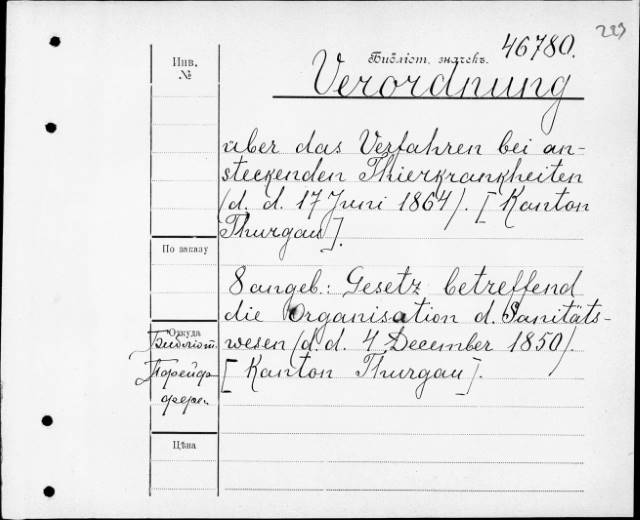 223
46780.
Инв.
№
Библіот. значекъ.
Verordnung
über das Verfahren bei an-
steckenden Thierkrankheiten
(d. d. 17 Juni 1864). [Kanton
Thurgau].
По заказу
8 angeb.: Gesetz betreffend
die Organisation d. Sanitäts-
wesen (d. d. 4 December 1850).
[Kanton Thurgau].
Откуда
Библіот.
Цѣна